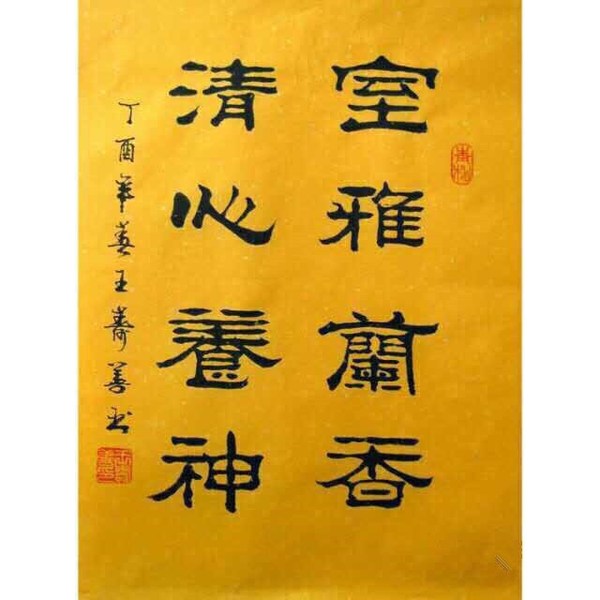 室雅蘭香
清心養神
丁酉年
王壽善書